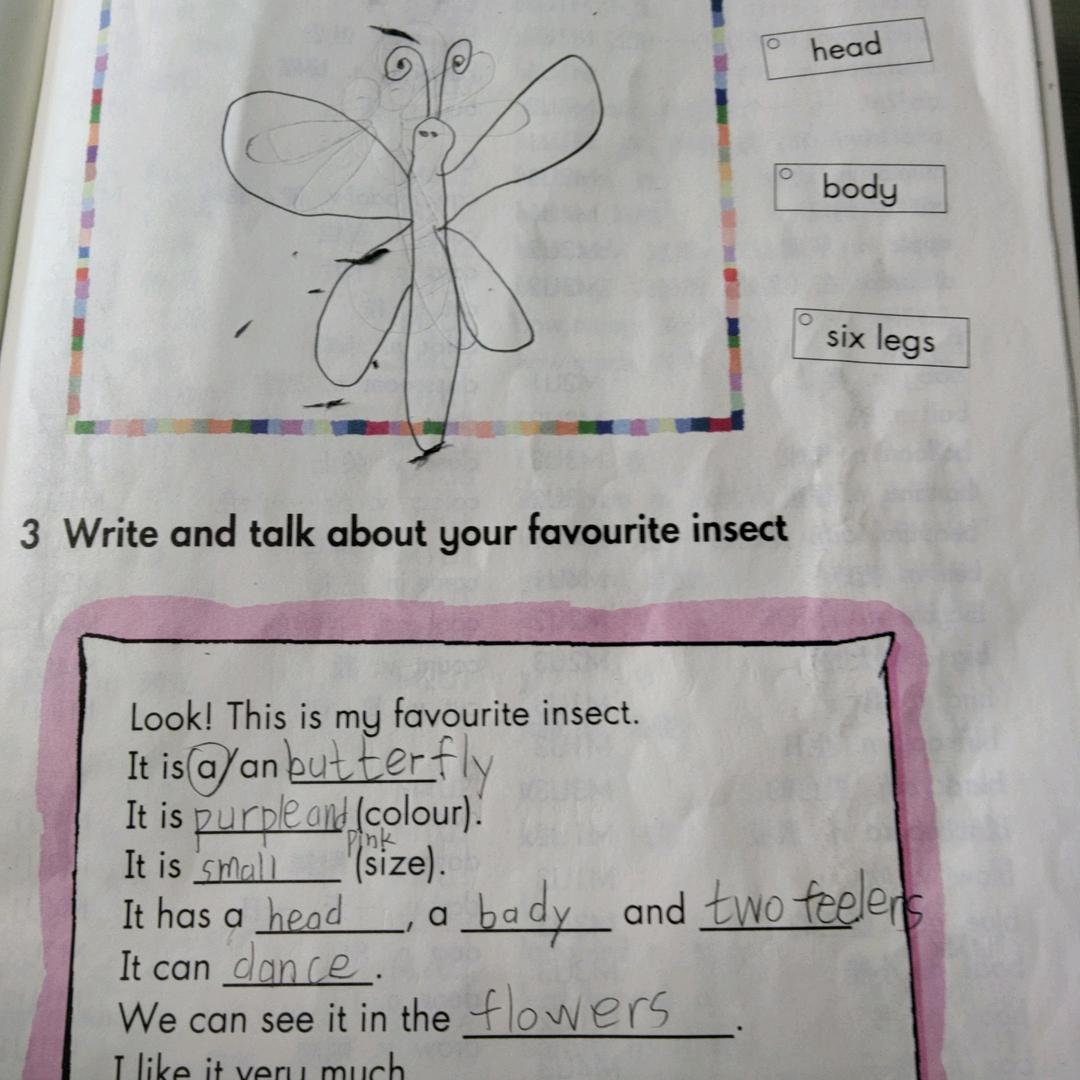 head
body
six legs
3 Write and talk about your favourite insect
Look! This is my favourite insect.
It is a/an butterfly
It is purple and (colour).
pink
It is small (size).
It has a head, a bady and two feelers
It can dance.
We can see it in the flowers.
I like it very much